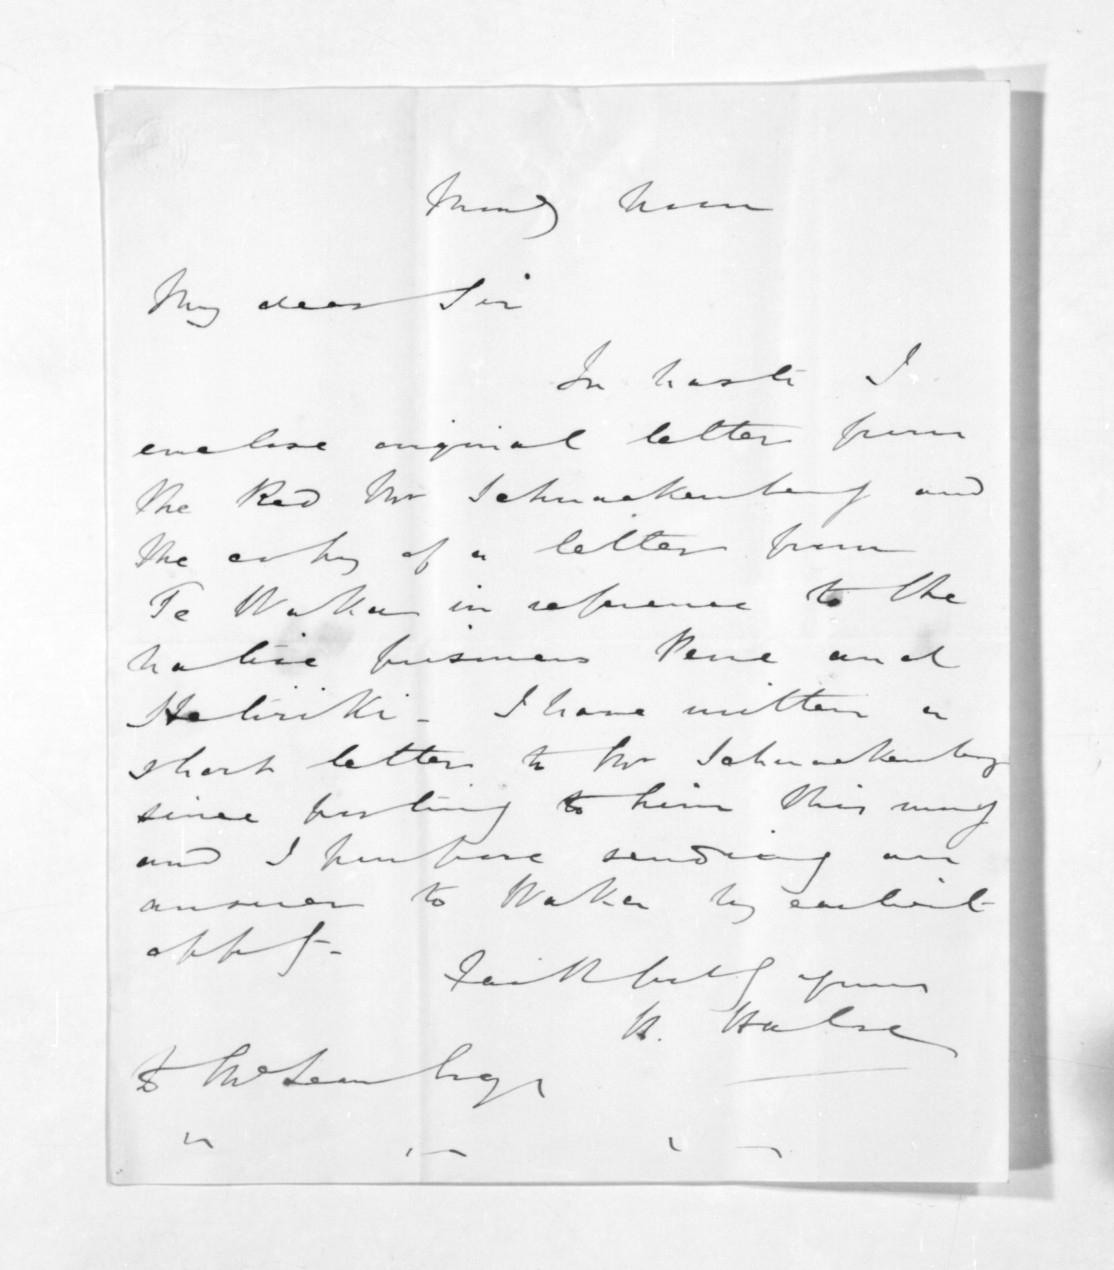 Monday Noon
My dear Sir
In haste I
enclose original letter from
the Revd Mr Schnackenberg and
the copy of a letter from
Te Waka in reference to the
native prisoners Pene and
Hetiriki - I have written a
short letter to Mr Schnackenberg
since posting to him this morng
and I purpose sending an
answer to Waka by earliest
oppty -
Faithfully yours
H. Halse
D McLean Esqr